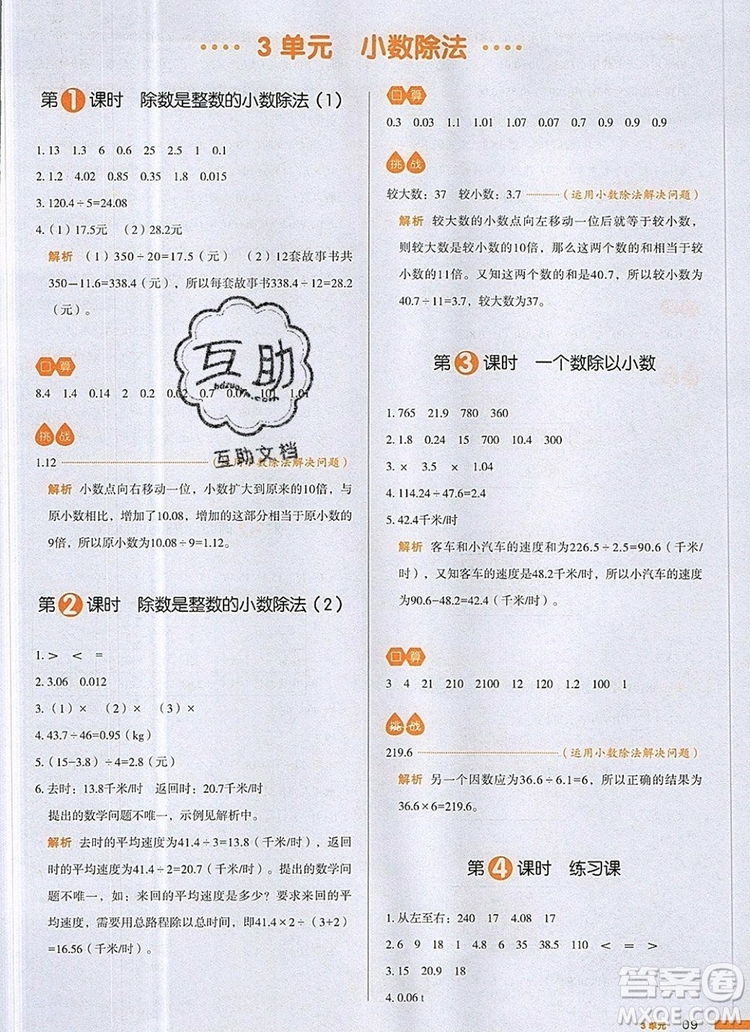 3 单元 小数除法
第1课时 除数是整数的小数除法（1）
1. 13 1.3 6 0.6 25 1 0.1
2. 1.2 4.02 0.85 0.35 1.8 0.015
3. 120.4÷5=24.08
4.（1）17.5元 （2）28.2元
解析 （1）350÷20=17.5（元）（2）12套故事书共
350－11.6=338.4（元），所以每套故事书338.4÷12=28.2
（元）。
口算
8.4 1.4 0.14 2 0.2 0.02 0.7 0.07 101 1.01
挑战
1.12 （运用小数除法解决问题）
解析 小数点向右移动一位，小数扩大到原来的10倍，与
原小数相比，增加了10.08，增加的这部分相当于原小数的
9倍，所以原小数为10.08÷9=1.12。
第2课时 除数是整数的小数除法（2）
1. ＞ ＜ =
2. 3.06 0.012
3.（1）× （2）× （3）×
4. 43.7÷46=0.95（kg）
5.（15－3.8）÷4=2.8（元）
6. 去时：13.8千米/时 返回时：20.7千米/时
提出的数学问题不唯一，示例见解析中。
解析 去时的平均速度为41.4÷3=13.8（千米/时），返回
时的平均速度为41.4÷2=20.7（千米/时）。提出的数学问
题不唯一，如：来回的平均速度是多少？要求来回的平
均速度，需要用总路程除以总时间，即41.4×2÷（3+2）
=16.56（千米/时）。
口算
0.3 0.03 1.1 1.01 0.07 0.7 0.9 0.9 0.9 0.9
挑战
较大数：37 较小数：3.7 （运用小数除法解决问题）
解析 较大数的小数点向左移动一位后就与较小数相等，
则较大数是较小数的10倍，那么这两个数的和就是较小
数的11倍。又知这两个数的和是40.7，所以较小数为
40.7÷11=3.7，较大数为37。
第3课时 一个数除以小数
1. 765 21.9 780 360
2. 1.8 0.24 15 700 0.5
3. × × ×
4. 114.24÷47.6=2.4
5. 42.4千米/时
解析 客车和小汽车的速度和为226.5÷2.5=90.6（千米/
时），又知客车的速度是48.2千米/时，所以小汽车的速度
为90.6－48.2=42.4（千米/时）。
口算
3 4 21 210 2100 12 120 1.2 1.2 120
挑战
219.6 （运用小数除法解决问题）
解析 另一个因数应为36.6÷6.1=6，所以正确的结果为
36.6×6=219.6。
第4课时 练习课
1. 从左至右：240 17 4.08 17
2. 6 9 18 1 0.4 0.6 ＜ ＞ ＞ ＜
3. 15 20 18
4. 0.06 t
3单元 09
互助
bdzuoye.com
互助文档
答案圈
MXQE.COM